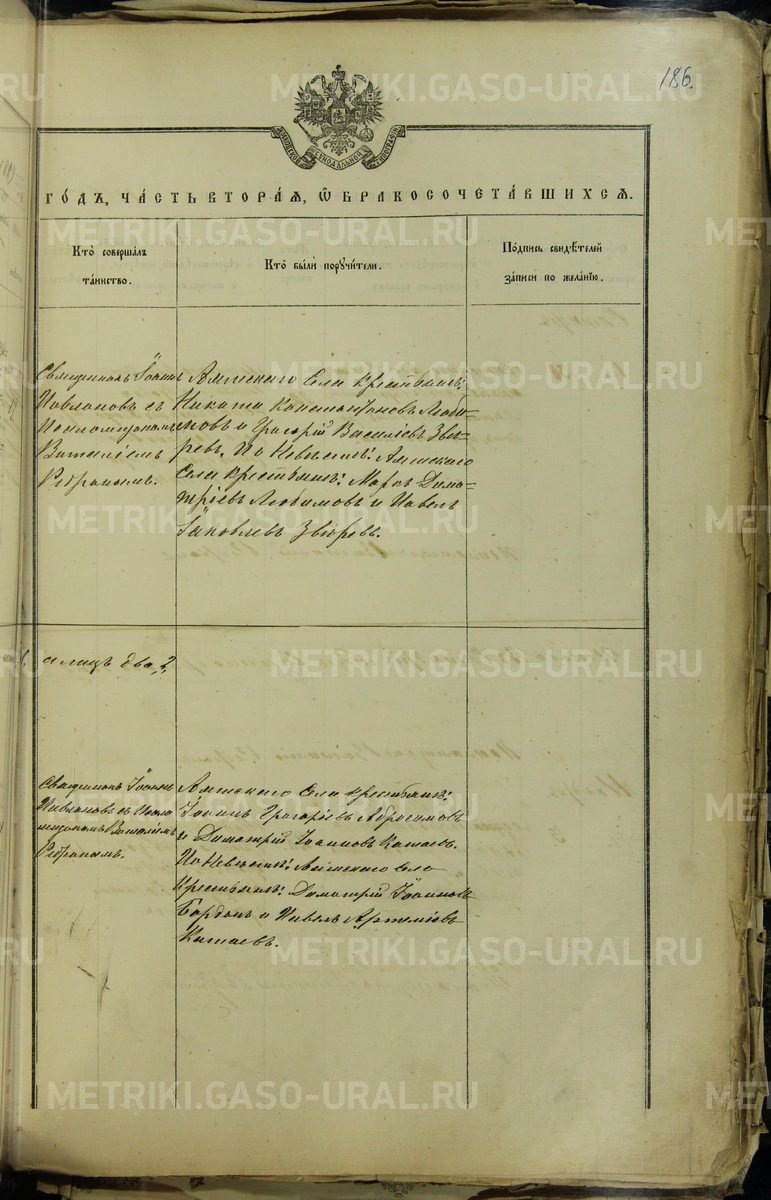 186.
МОСКОВСКОЙ СѴНОДАЛЬНОЙ ТИПОГРАФІИ
ГО́ДЪ, ЧА́СТЬ ВТОРА́Я, Ѡ БРАКОСОЧЕТА́ВШИХСЯ.
Кто̀ соверша́лъ
та́инство.
Кто̀ бы́ли поручи́тели.
По́дпись свидѣ́телей
за́писи по жела́нію.
Священникъ Іоаннъ
Павлановъ съ
Псаломщикомъ
Виталіемъ
Аятскаго Села крестьяне:
Никита Константиновъ Люби-
мовъ и Григорій Василіевъ Звѣ-
ревъ, По Невѣстѣ: Аятскаго
Села крестьяне: Маркъ Дими-
тріевъ Любимовъ и Павелъ
Іаковлевъ Звѣревъ.
а лицъ два „2„
Священникъ Іоаннъ
Павлановъ съ Псало
мщикомъ Виталіемъ
Аятскаго Села крестьяне:
Іоаннъ Григоріевъ Абросимовъ
и Димитрій Іоанновъ Катаевъ.
По Невѣстѣ: Аятскаго Села
Крестьяне: Димитрій Іоанновъ
и Павелъ Артеміевъ
Катаевъ.
METRIKI.GASO-URAL.RU